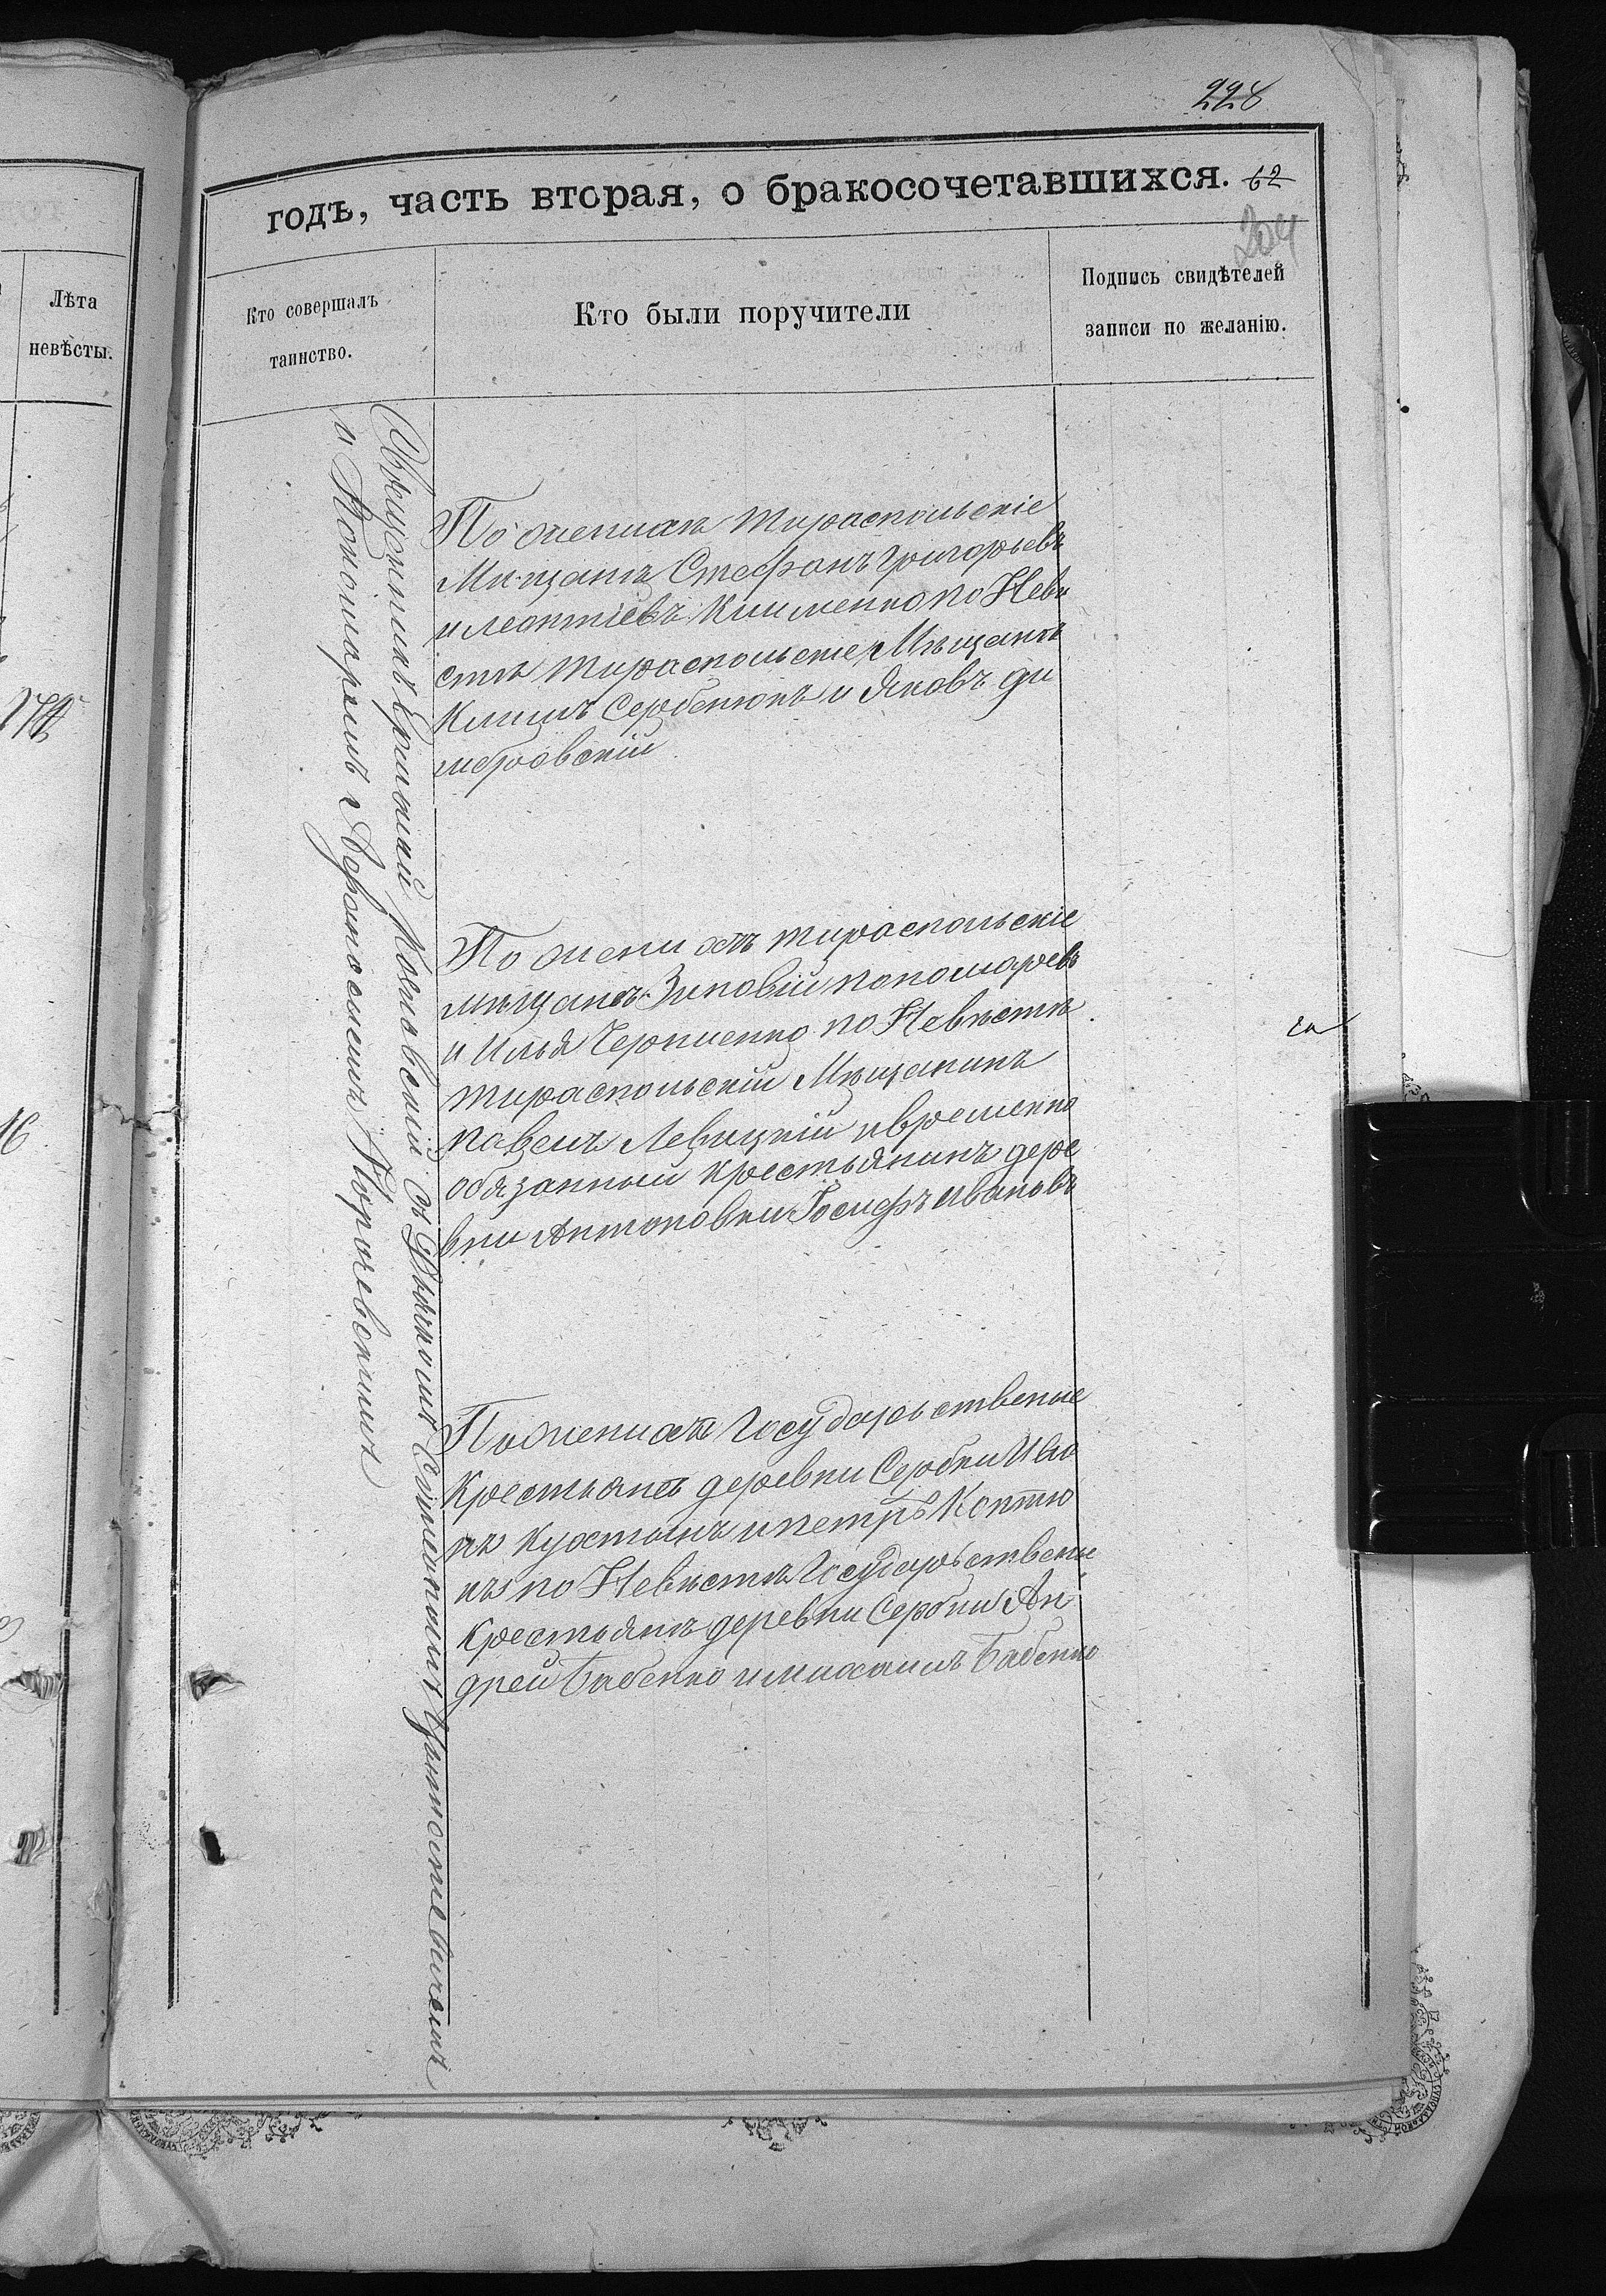 228
годъ, часть вторая, о бракосочетавшихся. 62
204
Лѣта
невѣсты.
Кто совершалъ
таинство.
Кто были поручители
Подпись свидѣтелей
записи по желанію.
Священникъ Ермолай с Дьякономъ
и Пономаремъ
По женихѣ тираспольскіе
Мѣщанѣ Стефанъ Григорьевъ
и леонтіевъ Клименко по Невѣ
стѣ тираспольскіе Мѣщанѣ
Климъ Сербенюкъ и Яковъ ди
мбровскій
По жених ѣтъ тираспольскіе
мѣщанѣ Зиновій пономаревъ
и Илья Черниенко по Невѣстѣ
тираспольскій Мѣщанинъ
павелъ Левицкій и временно
обязанный крестьянинъ дере
вни Антоновки Іосифъ Ивановъ
По женихѣ Государственые
Крестьянѣ деревни Сербки Ива
нъ Кустынъ и петръ Коптю
къ по Невѣстѣ Государствены
Крестьянѣ деревни Сербки Ан
дрей Бабенко и михаилъ Бабенко
16